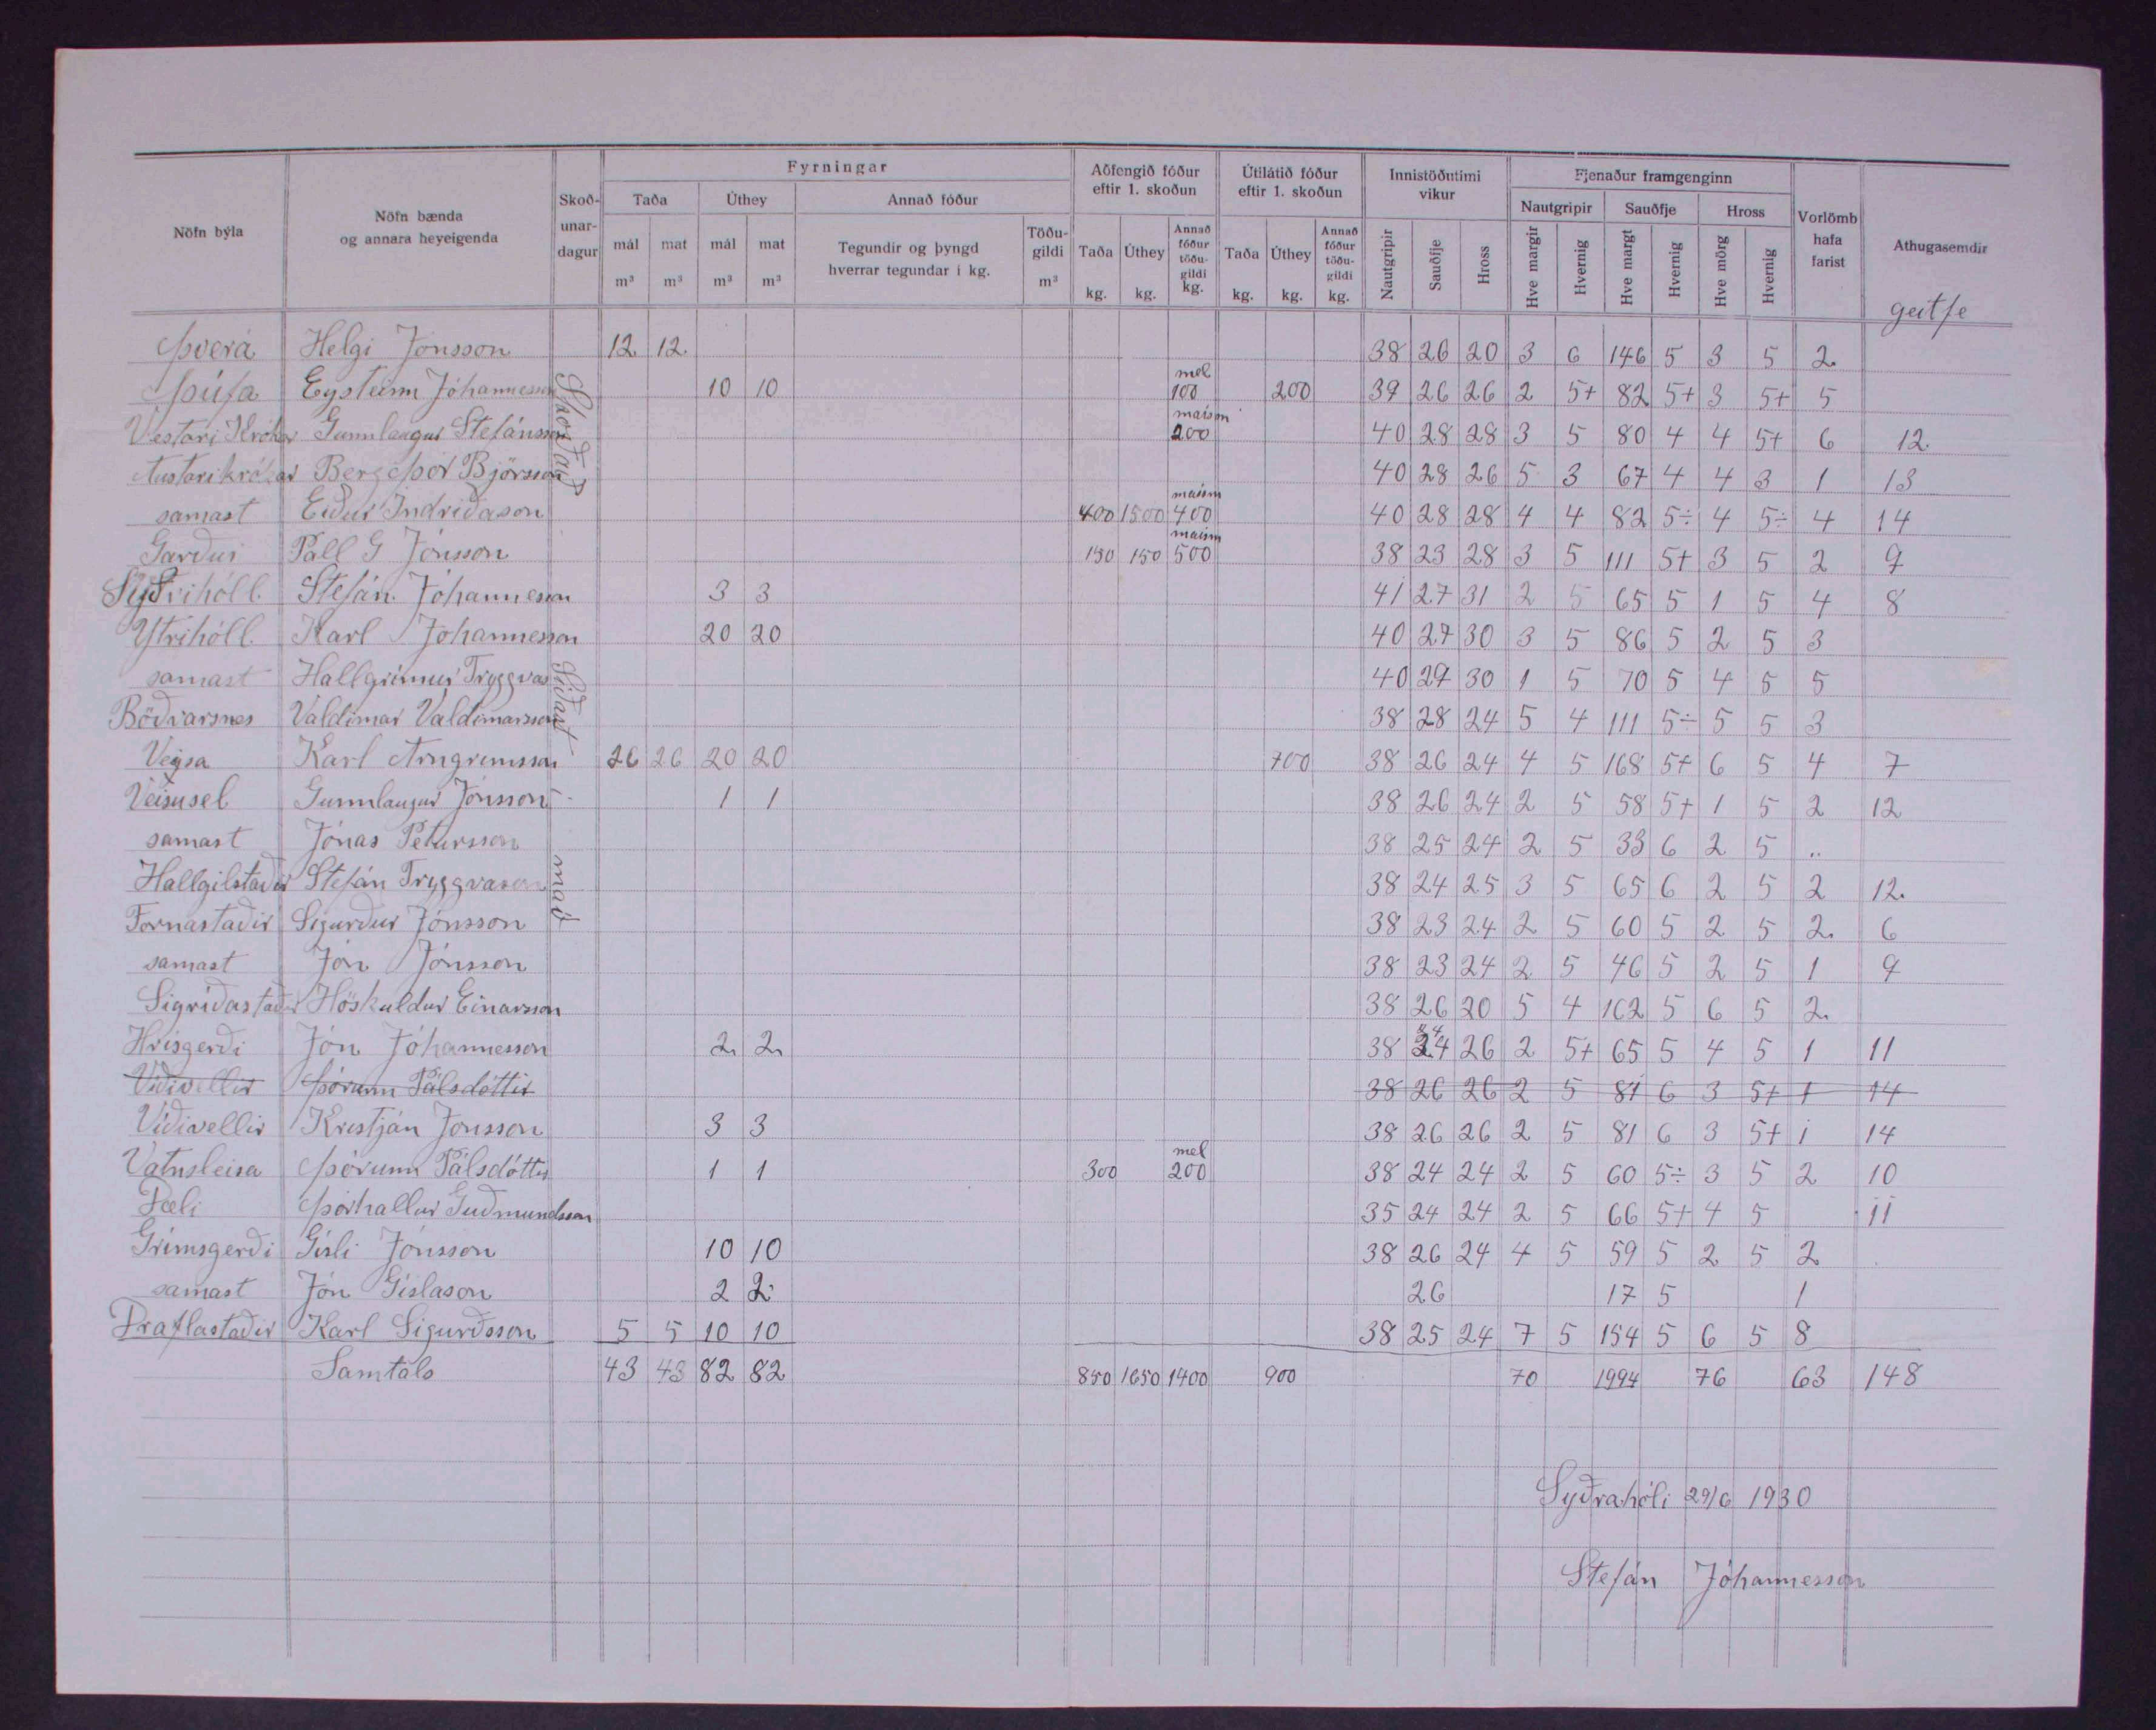 Nöfn býla
Nöfn bænda og annara heyeigenda
Skoð-unar-dagur
Fyrningar
Taða
Úthey
Annað fóður
mál m³
mat m³
mál m³
mat m³
Tegundir og þyngd hverrar tegundar í kg.
Töðu-gildi m³
Aðfengið fóður eftir 1. skoðun
Taða kg.
Úthey kg.
Annað fóður töðu-gildi kg.
Útilátið fóður eftir 1. skoðun
Taða kg.
Úthey kg.
Annað fóður töðu-gildi kg.
Innistöðutimi vikur
Nautgripir
Sauðfje
Hross
Fjenaður framgenginn
Nautgripir
Sauðfje
Hross
Hve margir
Hvernig
Hve margt
Hvernig
Hve mörg
Hvernig
Vorlömb hafa farist
Athugasemdir
geitfe
Skoðað
Síðast
maí
Þverá Helgi Jónsson 12 12 38 26 20 3 6 146 5 3 5 2
Þúfa Eysteinn Jóhannesson 10 10 mel 100 200 39 26 26 2 5+ 82 5+ 3 5+ 5
Vestari Krókar Gunnlaugur Stefánsson maism 200 40 28 28 3 5 80 4 4 5+ 6 12.
Austarikrókar Bergþór Björsson 40 28 26 5 3 67 4 4 3 1 13
samast Eiður Indriðason 400 1500 maism 400 40 28 28 4 4 82 5÷ 4 5÷ 4 14
Garður Páll G Jónsson 150 150 maism 500 38 23 28 3 5 111 5+ 3 5 2 9
Syðrihóll Stefán Jóhannesson 3 3 41 27 31 2 5 65 5 1 5 4 8
Ytrihóll Karl Jóhannesson 20 20 40 27 30 3 5 86 5 2 5 3
samast Hallgrímur Tryggvas 40 27 30 1 5 70 5 4 5 5
Böðvarsnes Valdimar Valdimarsson 38 28 24 5 4 111 5÷ 5 5 3
Veisa Karl Arngrímsson 26 26 20 20 700 38 26 24 4 5 168 5+ 6 5 4 7
Veisusel Gunnlaugur Jónsson 1 1 38 26 24 2 5 58 5+ 1 5 2 12
samast Jónas Pétursson 38 25 24 2 5 33 6 2 5 ..
Hallgilstaðir Stefán Tryggvason 38 24 25 3 5 65 6 2 5 2 12.
Fornastaðir Sigurður Jónsson 38 23 24 2 5 60 5 2 5 2. 6
samast Jón Jónsson 38 23 24 2 5 46 5 2 5 1 9
Sigríðastaðir Höskuldur Einarsson 38 26 20 5 4 162 5 6 5 2.
Hrísgerði Jón Jóhannesson 2 2 38 24 26 2 5+ 65 5 4 5 1 11
Víðivellir Þórunn Pálsdóttir 38 26 26 2 5 81 6 3 5+ 1 14
Víðivellir Kristján Jónsson 3 3 38 26 26 2 5 81 6 3 5+ 1 14
Vatnsleisa Þórunn Pálsdóttir 1 1 300 mel 200 38 24 24 2 5 60 5÷ 3 5 2 10
Dæli Þórhallur Guðmundsson 35 24 24 2 5 66 5+ 4 5 11
Grímsgerði Gísli Jónsson 10 10 38 26 24 4 5 59 5 2 5 2
samast Jón Gíslason 2 2 26 17 5 1
Draflastaðir Karl Sigurðsson 5 5 10 10 38 25 24 7 5 154 5 6 5 8
Samtals 43 43 82 82 850 1650 1400 900 70 1994 76 63 148
Syðrahóli 29/6 1930
Stefán Jóhannesson